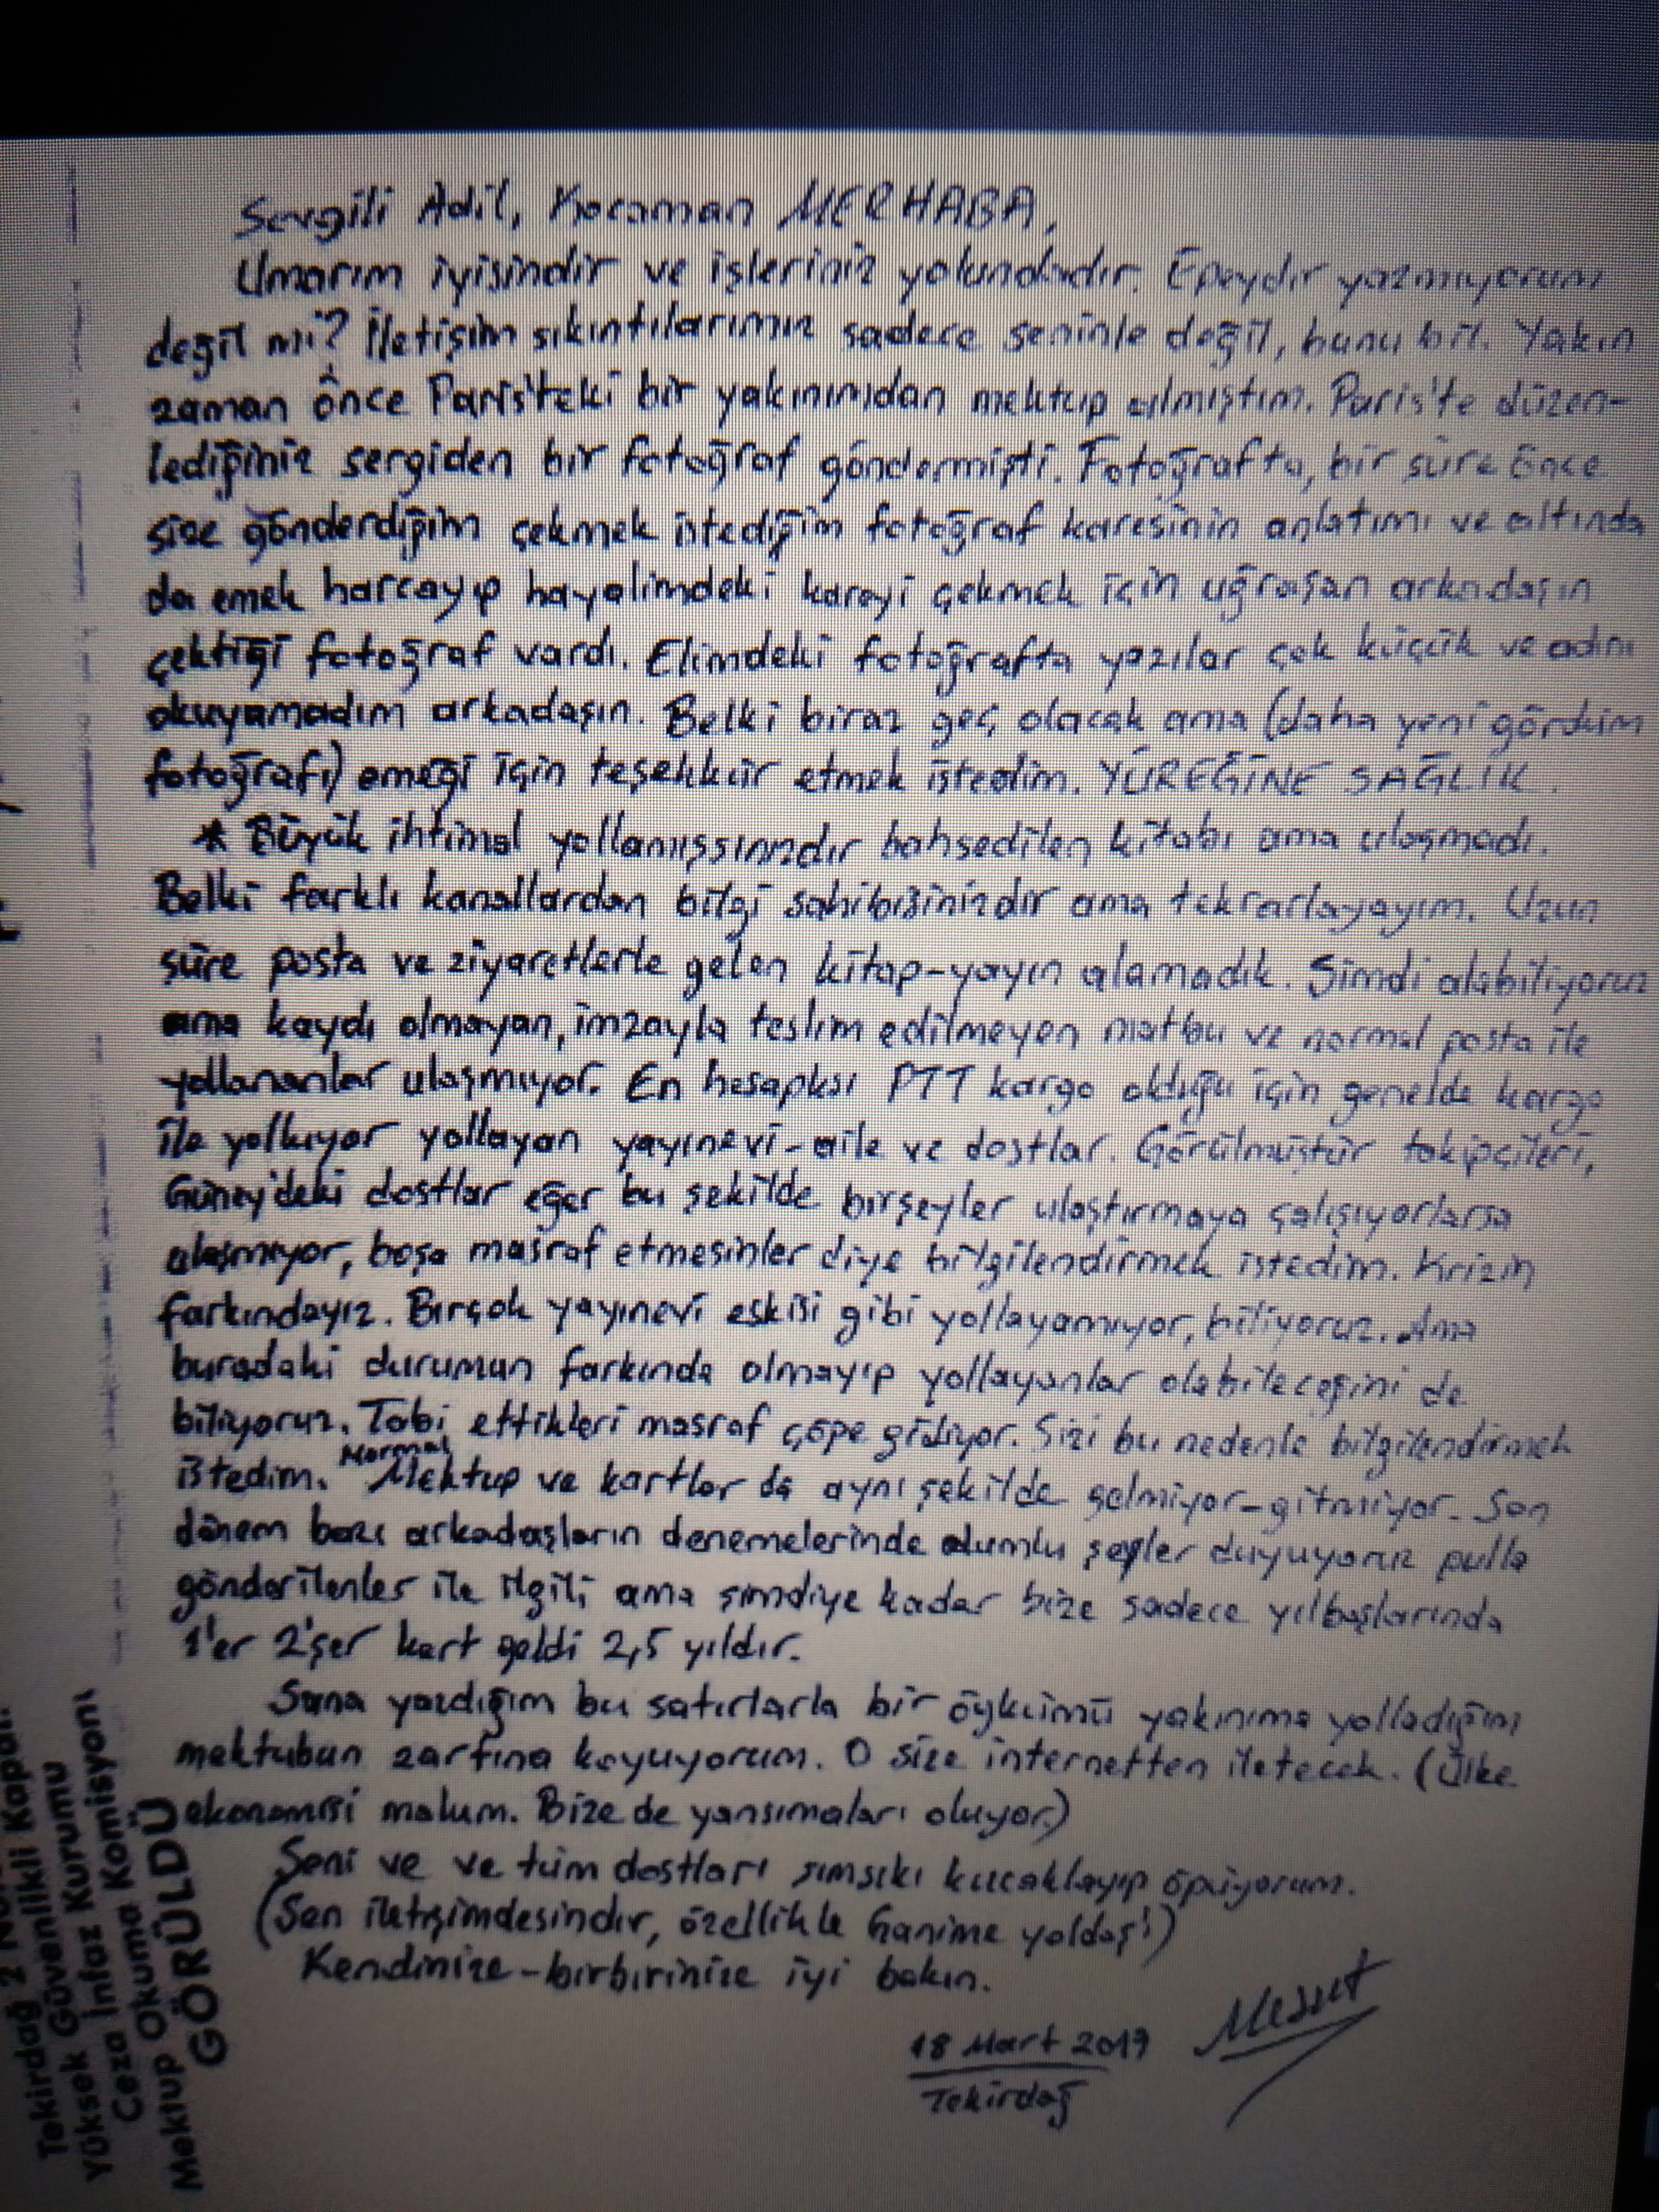 Sevgili Adil, Kocaman MERHABA,
Umarım iyisindir ve işleriniz yolundadır. Epeydir yazmıyorum
değil mi? İletişim sıkıntılarımız sadece seninle değil, bunu bil. Yakın
zaman önce Paris'teki bir yakınımdan mektup almıştım. Paris'te düzen-
lediğiniz sergiden bir fotoğraf göndermişti. Fotoğrafta, bir süre önce
size gönderdiğim çekmek istediğim fotoğraf karesinin anlatımı ve altında
da emek harcayıp hayalimdeki kareyi çekmek için uğraşan arkadaşın
çektiği fotoğraf vardı. Elimdeki fotoğrafta yazılar çok küçük ve adını
okuyamadım arkadaşın. Belki biraz geç olacak ama (daha yeni gördüm
fotoğrafı) emeği için teşekkür etmek istedim. YÜREĞİNE SAĞLIK.
* Büyük ihtimal yollamışsınızdır bahsedilen kitabı ama ulaşmadı.
Belki farklı kanallardan bilgi sahibisinizdir ama tekrarlayayım. Uzun
süre posta ve ziyaretlerle gelen kitap-yayın alamadık. Şimdi alabiliyoruz
ama kaydı olmayan, imzayla teslim edilmeyen matbu ve normal posta ile
yollananlar ulaşmıyor. En hesaplısı PTT kargo olduğu için genelde kargo
ile yolluyor yollayan yayınevi-aile ve dostlar. Görülmüştür takipçileri,
Güney'deki dostlar eğer bu şekilde birşeyler ulaştırmaya çalışıyorlarsa
ulaşmıyor, boşa masraf etmesinler diye bilgilendirmek istedim. Krizin
farkındayız. Birçok yayınevi eskisi gibi yollayamıyor, biliyoruz. Ama
buradaki durumun farkında olmayıp yollayanlar olabileceğini de
biliyoruz. Tabi ettikleri masraf çöpe gidiyor. Sizi bu nedenle bilgilendirmek
istedim. Normal Mektup ve kartlar da aynı şekilde gelmiyor-gitmiyor. Son
dönem bazı arkadaşların denemelerinde olumlu şeyler duyuyoruz pulla
gönderilenler ile ilgili ama şimdiye kadar bize sadece yılbaşlarında
1'er 2'şer kart geldi 2,5 yıldır.
Sana yazdığım bu satırlarla bir öykümü yakınıma yolladığım
mektubun zarfına koyuyorum. O size internetten iletecek. (Ülke
ekonomisi malum. Bize de yansımaları oluyor.)
Seni ve ve tüm dostları sımsıkı kucaklayıp öpüyorum.
(Sen iletişimdesindir, özellikle Ganime yoldaş'ı)
Kendinize-birbirinize iyi bakın.
Mesut
18 Mart 2019
Tekirdağ
Tekirdağ 2 No
Yüksek Güvenlikli Kapalı
Ceza İnfaz Kurumu
Mektup Okuma Komisyonu
GÖRÜLDÜ